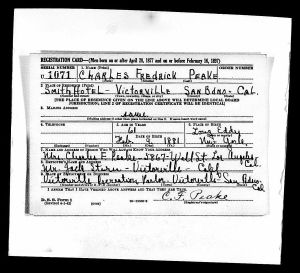 REGISTRATION CARD—(Men born on or after April 28, 1877 and on or before February 16, 1897)
SERIAL NUMBER 1. NAME (Print) ORDER NUMBER
1071 CHARLES FREDRICK PEAKE
2. PLACE OF RESIDENCE (Print)
SMITH HOTEL - VICTORVILLE SAN BDNO - CAL.
[THE PLACE OF RESIDENCE GIVEN ON THE LINE ABOVE WILL DETERMINE LOCAL BOARD
JURISDICTION; LINE 2 OF REGISTRATION CERTIFICATE WILL BE IDENTICAL]
3. MAILING ADDRESS
same
4. TELEPHONE 5. AGE IN YEARS 6. PLACE OF BIRTH
61 Long Eddy
DATE OF BIRTH
Feb. 1881 New York.
7. NAME AND ADDRESS OF PERSON WHO WILL ALWAYS KNOW YOUR ADDRESS
Mrs. Charles F. Peake - 5867 - St. Los Angeles Cal
Mr. Jack - Victorville - Calif
Victorville Recreation Victorville San Bdno. Cal
I AFFIRM THAT I HAVE VERIFIED ABOVE ANSWERS AND THAT THEY ARE TRUE.
D. S. S. Form 1
C. F. Peake